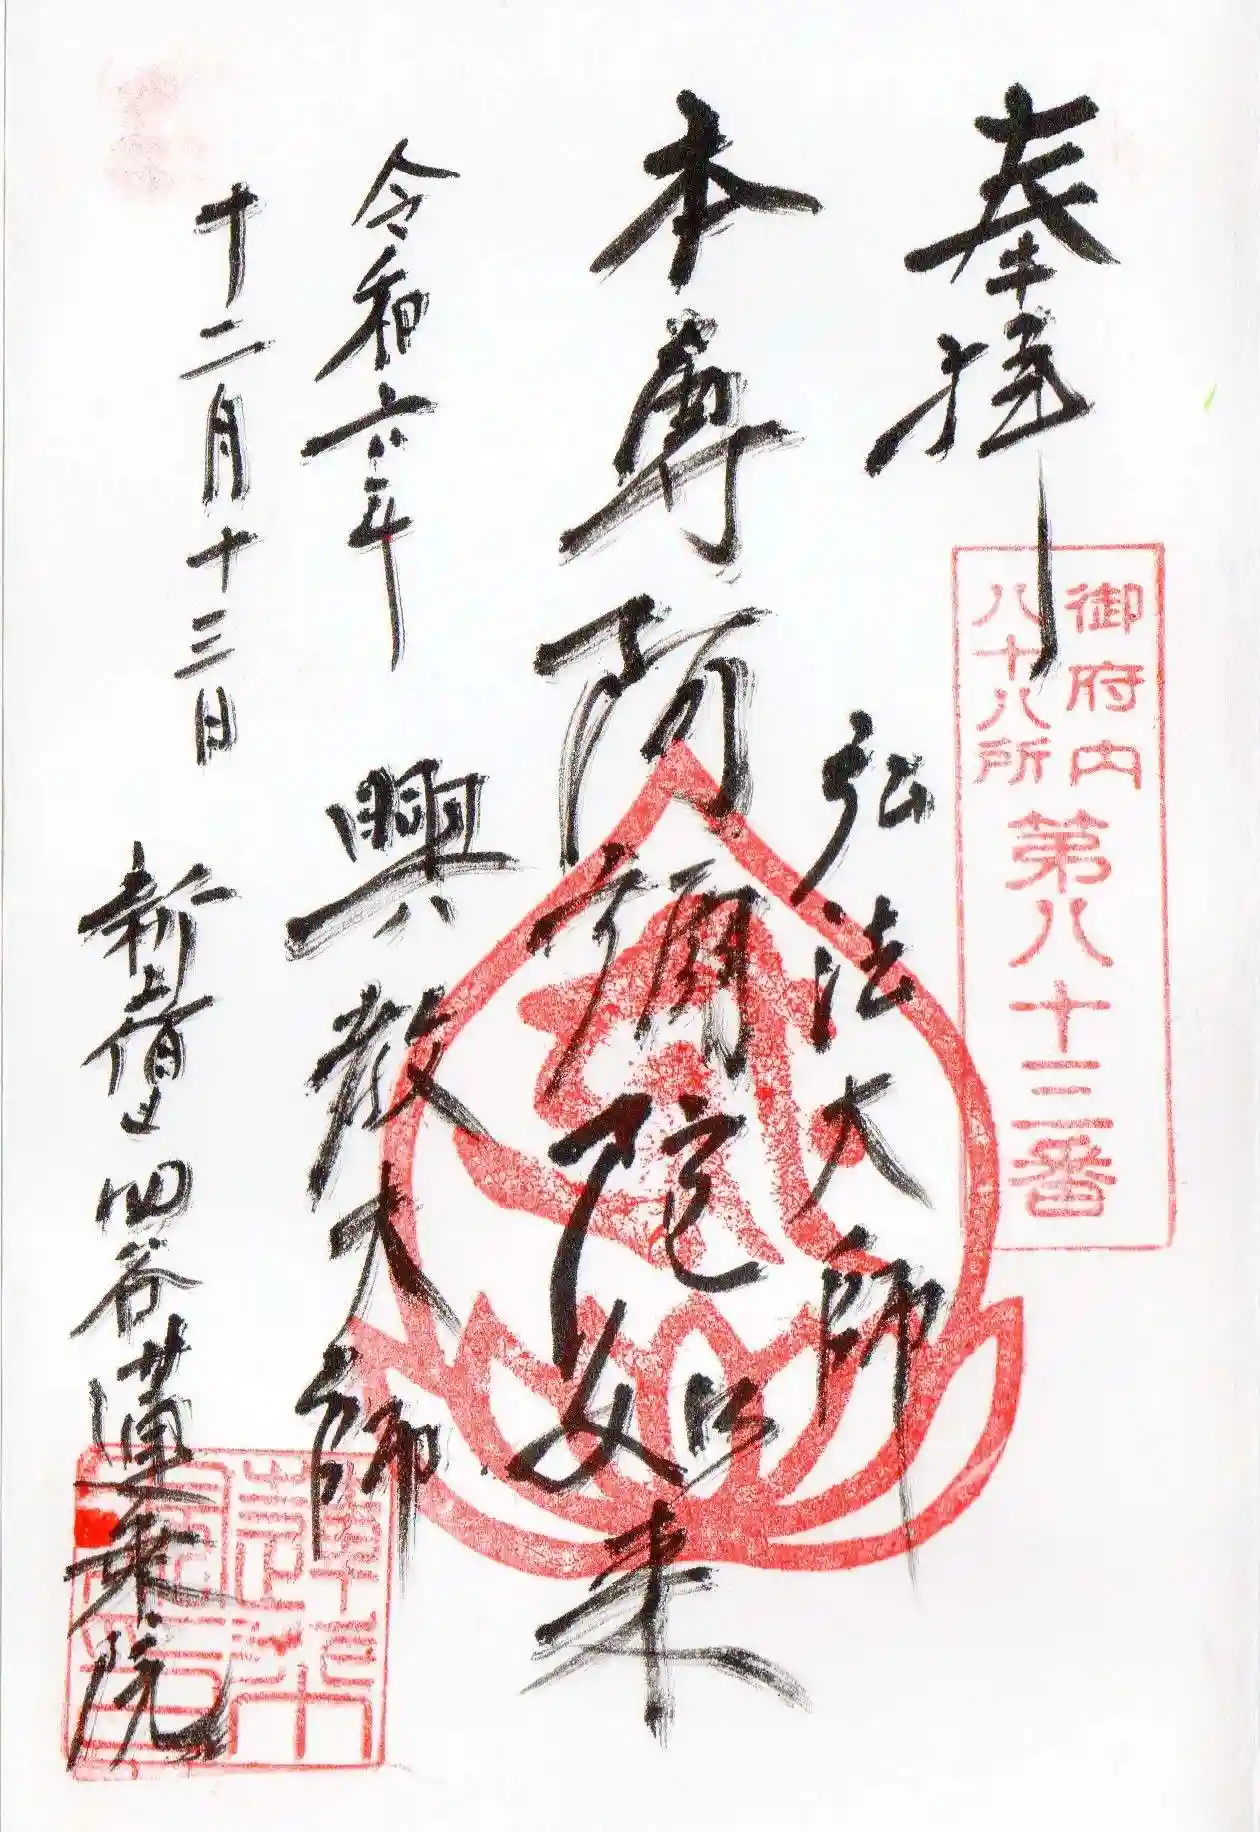 奉拝
御府内
八十八所
第八十三番
弘法大師
本尊阿彌陀如来
興教大師
令和六年
十二月十三日
新宿四谷蓮乗院